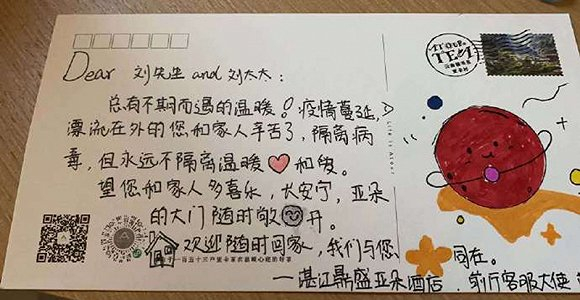 Dear 刘先生 and 刘太太：
总有不期而遇的温暖！疫情蔓延，
漂流在外的您和家人辛苦了，隔离病
毒，但永远不隔离温暖和爱。
望您和家人多喜乐，长安宁，亚朵
的大门随时敞开。
欢迎随时回家，我们与您
同在。
——湛江鼎盛亚朵酒店
TEA